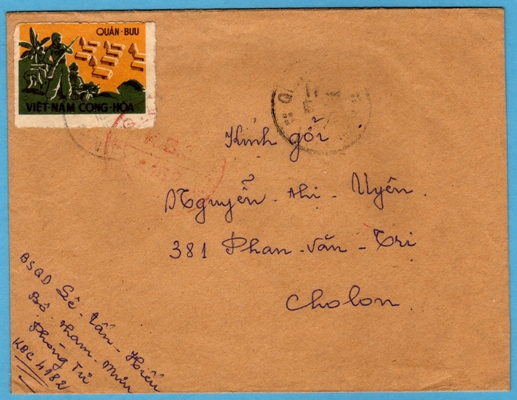 QUÂN-BƯU
VIỆT-NAM CỘNG-HÒA
Kính gởi
Nguyễn-thi-Uyên.
381 Phan-Văn-Tri
Cholon.
BSQD Lê-Văn-Hiếu
Bộ-tham-mưu
Phòng Tư
KBC 4982